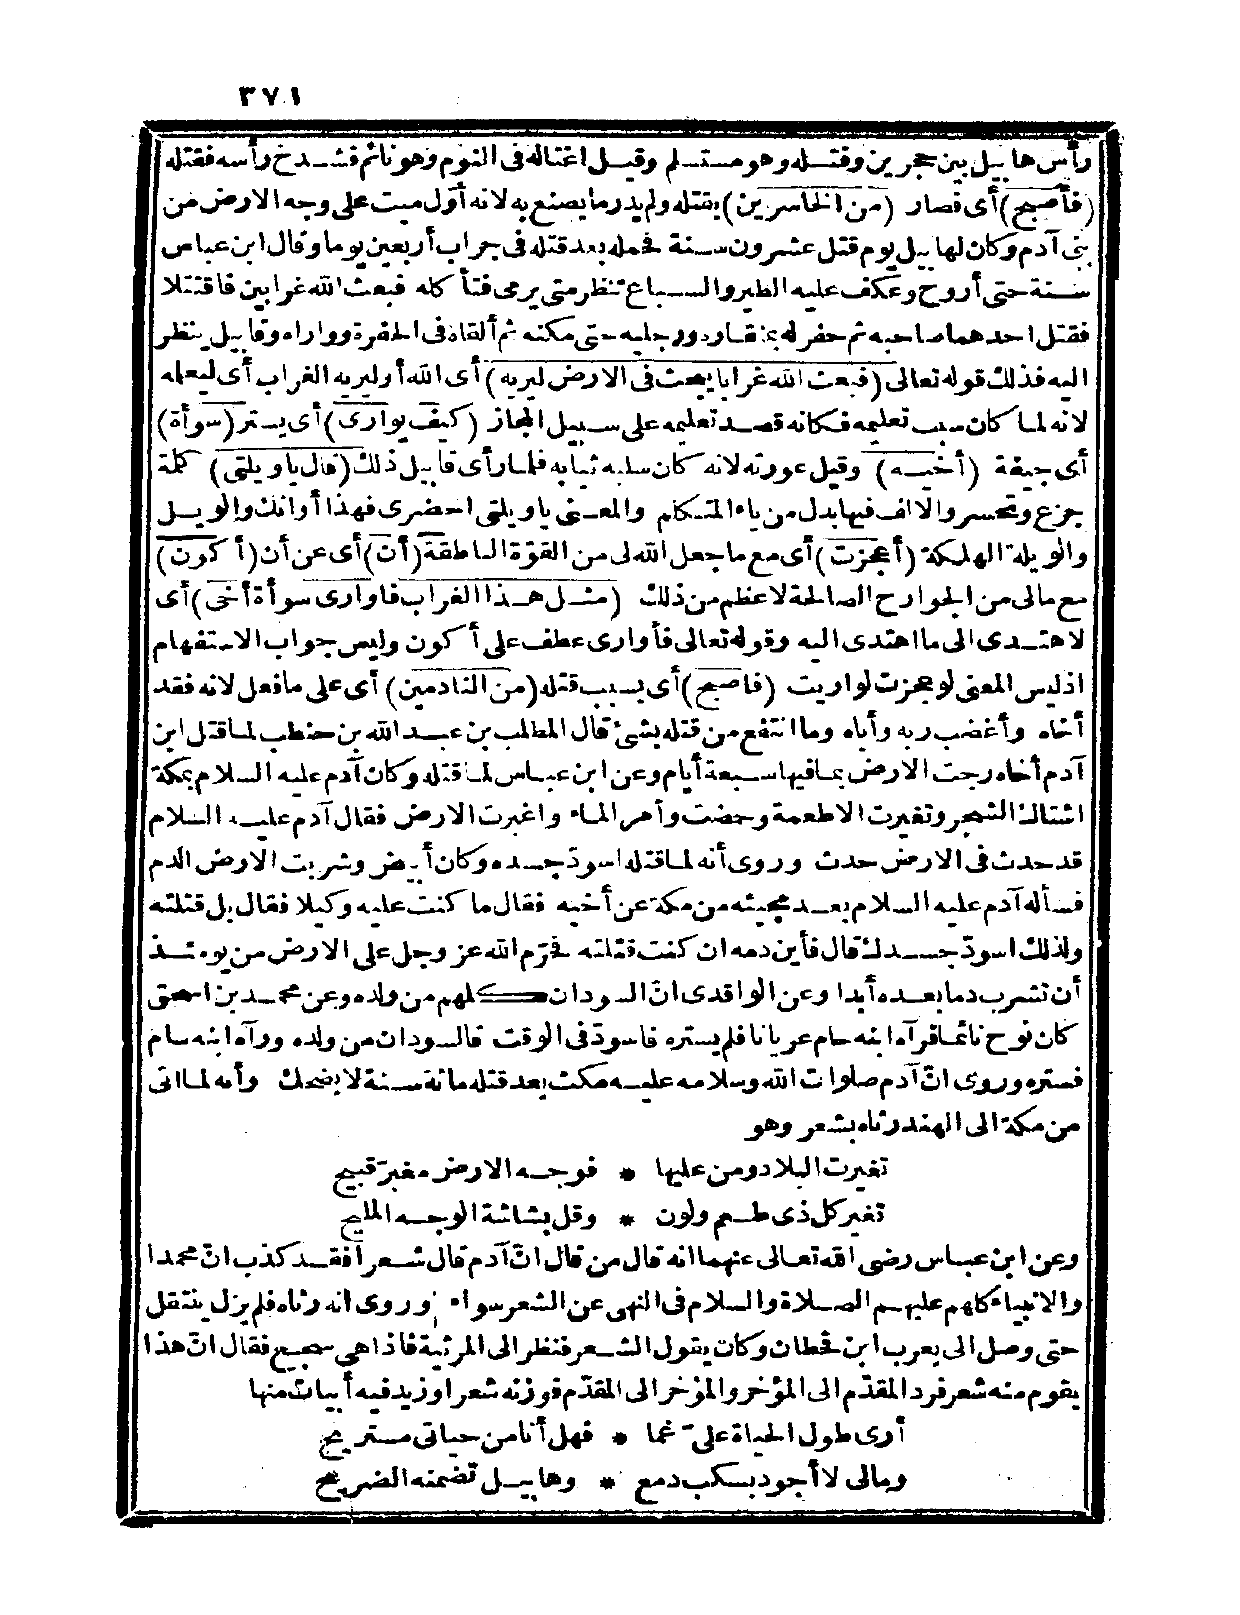 ٣٧١
رأس هابيل بين حجرين وقتله وهو مستسلم وقيل اغتاله فى النوم وهو نائم فشدخ رأسه فقتله
(فأصبح) أى فصار (من الخاسرين) بقتله ولم يدر ما يصنع به لانه أول ميت على وجه الارض من
بنى آدم وكان لهابيل يوم قتل عشرون سنة فحمله بعد قتله فى جراب أربعين يوما وقال ابن عباس
سنة حتى أروح وعكف عليه الطير والسباع تنظر متى يرمى فتأكله فبعث الله غرابين فاقتتلا
فقتل احدهما صاحبه ثم حفر له بمنقاره ورجليه حتى مكنه ثم ألقاه فى الحفرة وواراه وقابيل ينظر
اليه فذلك قوله تعالى (فبعث الله غرابا يبحث فى الارض ليريه) أى الله أو ليريه الغراب أى ليعلمه
لانه لما كان سبب تعليمه فكانه قصد تعليمه على سبيل المجاز (كيف يوارى) أى يستر (سوأة)
أى جيفة (أخيه) وقيل عورته لانه كان سلبه ثيابه فلما رأى قابيل ذلك (قال ياويلتى) كلمة
جزع وتحسر والالف فيها بدل من ياء المتكلم والمعنى ياويلتى احضرى فهذا أوانك والويل
والويلة الهلكة (أعجزت) أى مع ما جعل الله لى من القوة الناطقة (أن) أى عن أن (أكون)
مع مالى من الجوارح الصالحة لاعظم من ذلك (مثل هذا الغراب فاوارى سوأة أخى) أى
لاهتدى الى ما اهتدى اليه وقوله تعالى فأوارى عطف على أكون وليس جواب الاستفهام
اذليس المعنى لو عجزت لواريت (فاصبح) أى بسبب قتله (من النادمين) أى على ما فعل لانه فقد
أخاه وأغضب ربه وأباه وما انتفع من قتله بشئ قال المطلب بن عبد الله بن حنطب لما قتل ابن
آدم أخاه رجت الارض بما فيها سبعة أيام وعن ابن عباس لما قتله وكان آدم عليه السلام بمكة
اشتاك الشجر وتغيرت الاطعمة وحمضت وأمر الماء واغبرت الارض فقال آدم عليه السلام
قد حدث فى الارض حدث وروى أنه لما قتله اسودّ جسده وكان أبيض وشربت الارض الدم
فسأله آدم عليه السلام بعد مجيئه من مكة عن أخيه فقال ما كنت عليه وكيلا فقال بل قتلته
ولذلك اسودّ جسدك قال فأين دمه ان كنت قتلته فحرّم الله عز وجل على الارض من يومئذ
أن تشرب دما بعده أبدا وعن الواقدى انّ السودان كلهم من ولده وعن محمد بن اسحق
كان نوح نائما فرآه ابنه حام عريانا فلم يستره فاسودّ فى الوقت فالسودان من ولده ورآه ابنه سام
فستره وروى انّ آدم صلوات الله وسلامه عليه مكث بعد قتله مائة سنة لا يضحك وأنه لما اتى
من مكة الى الهند رثاه بشعر وهو
تغيرت البلاد ومن عليها * فوجه الارض مغبرّ قبيح
تغير كل ذى طعم ولون * وقل بشاشة الوجه المليح
وعن ابن عباس رضى الله تعالى عنهما انه قال من قال انّ آدم قال شعرا فقد كذب انّ محمدا
والانبياء كلهم عليهم الصلاة والسلام فى النهى عن الشعر سواء وروى انه رثاه فلم يزل ينتقل
حتى وصل الى يعرب ابن قحطان وكان يقول الشعر فنظر الى المرثية فاذا هى سجع فقال انّ هذا
يقوم منه شعر فرد المقدّم الى المؤخر والمؤخر الى المقدّم فوزنه شعرا وزيد فيه أبيات منها
أرى طول الحياة علىّ غما * فهل أنا من حياتى مستريح
ومالى لا أجود بسكب دمع * وهابيل تضمنه الضريح